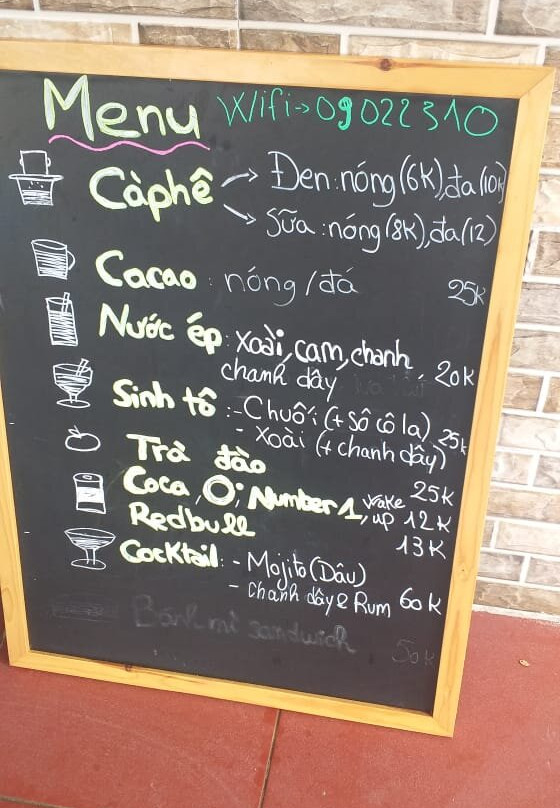 Menu Wifi→09022310
Càphê → Đen: nóng (6K), đa (10K)
→ Sữa: nóng (8K), đa (12)
Cacao: nóng / đá 25K
Nước ép: xoài, cam, chanh,
chanh dây 20K
Sinh tố: - Chuối (+ sô cô la) 25K
- Xoài (+ chanh dây)
Trà đào 25K
Coca, O°, Number 1, wake up 12K
Redbull 13K
Cocktail: - Mojito (Dâu)
- chanh dây & Rum 60K
Bánh mì sandwich 50K